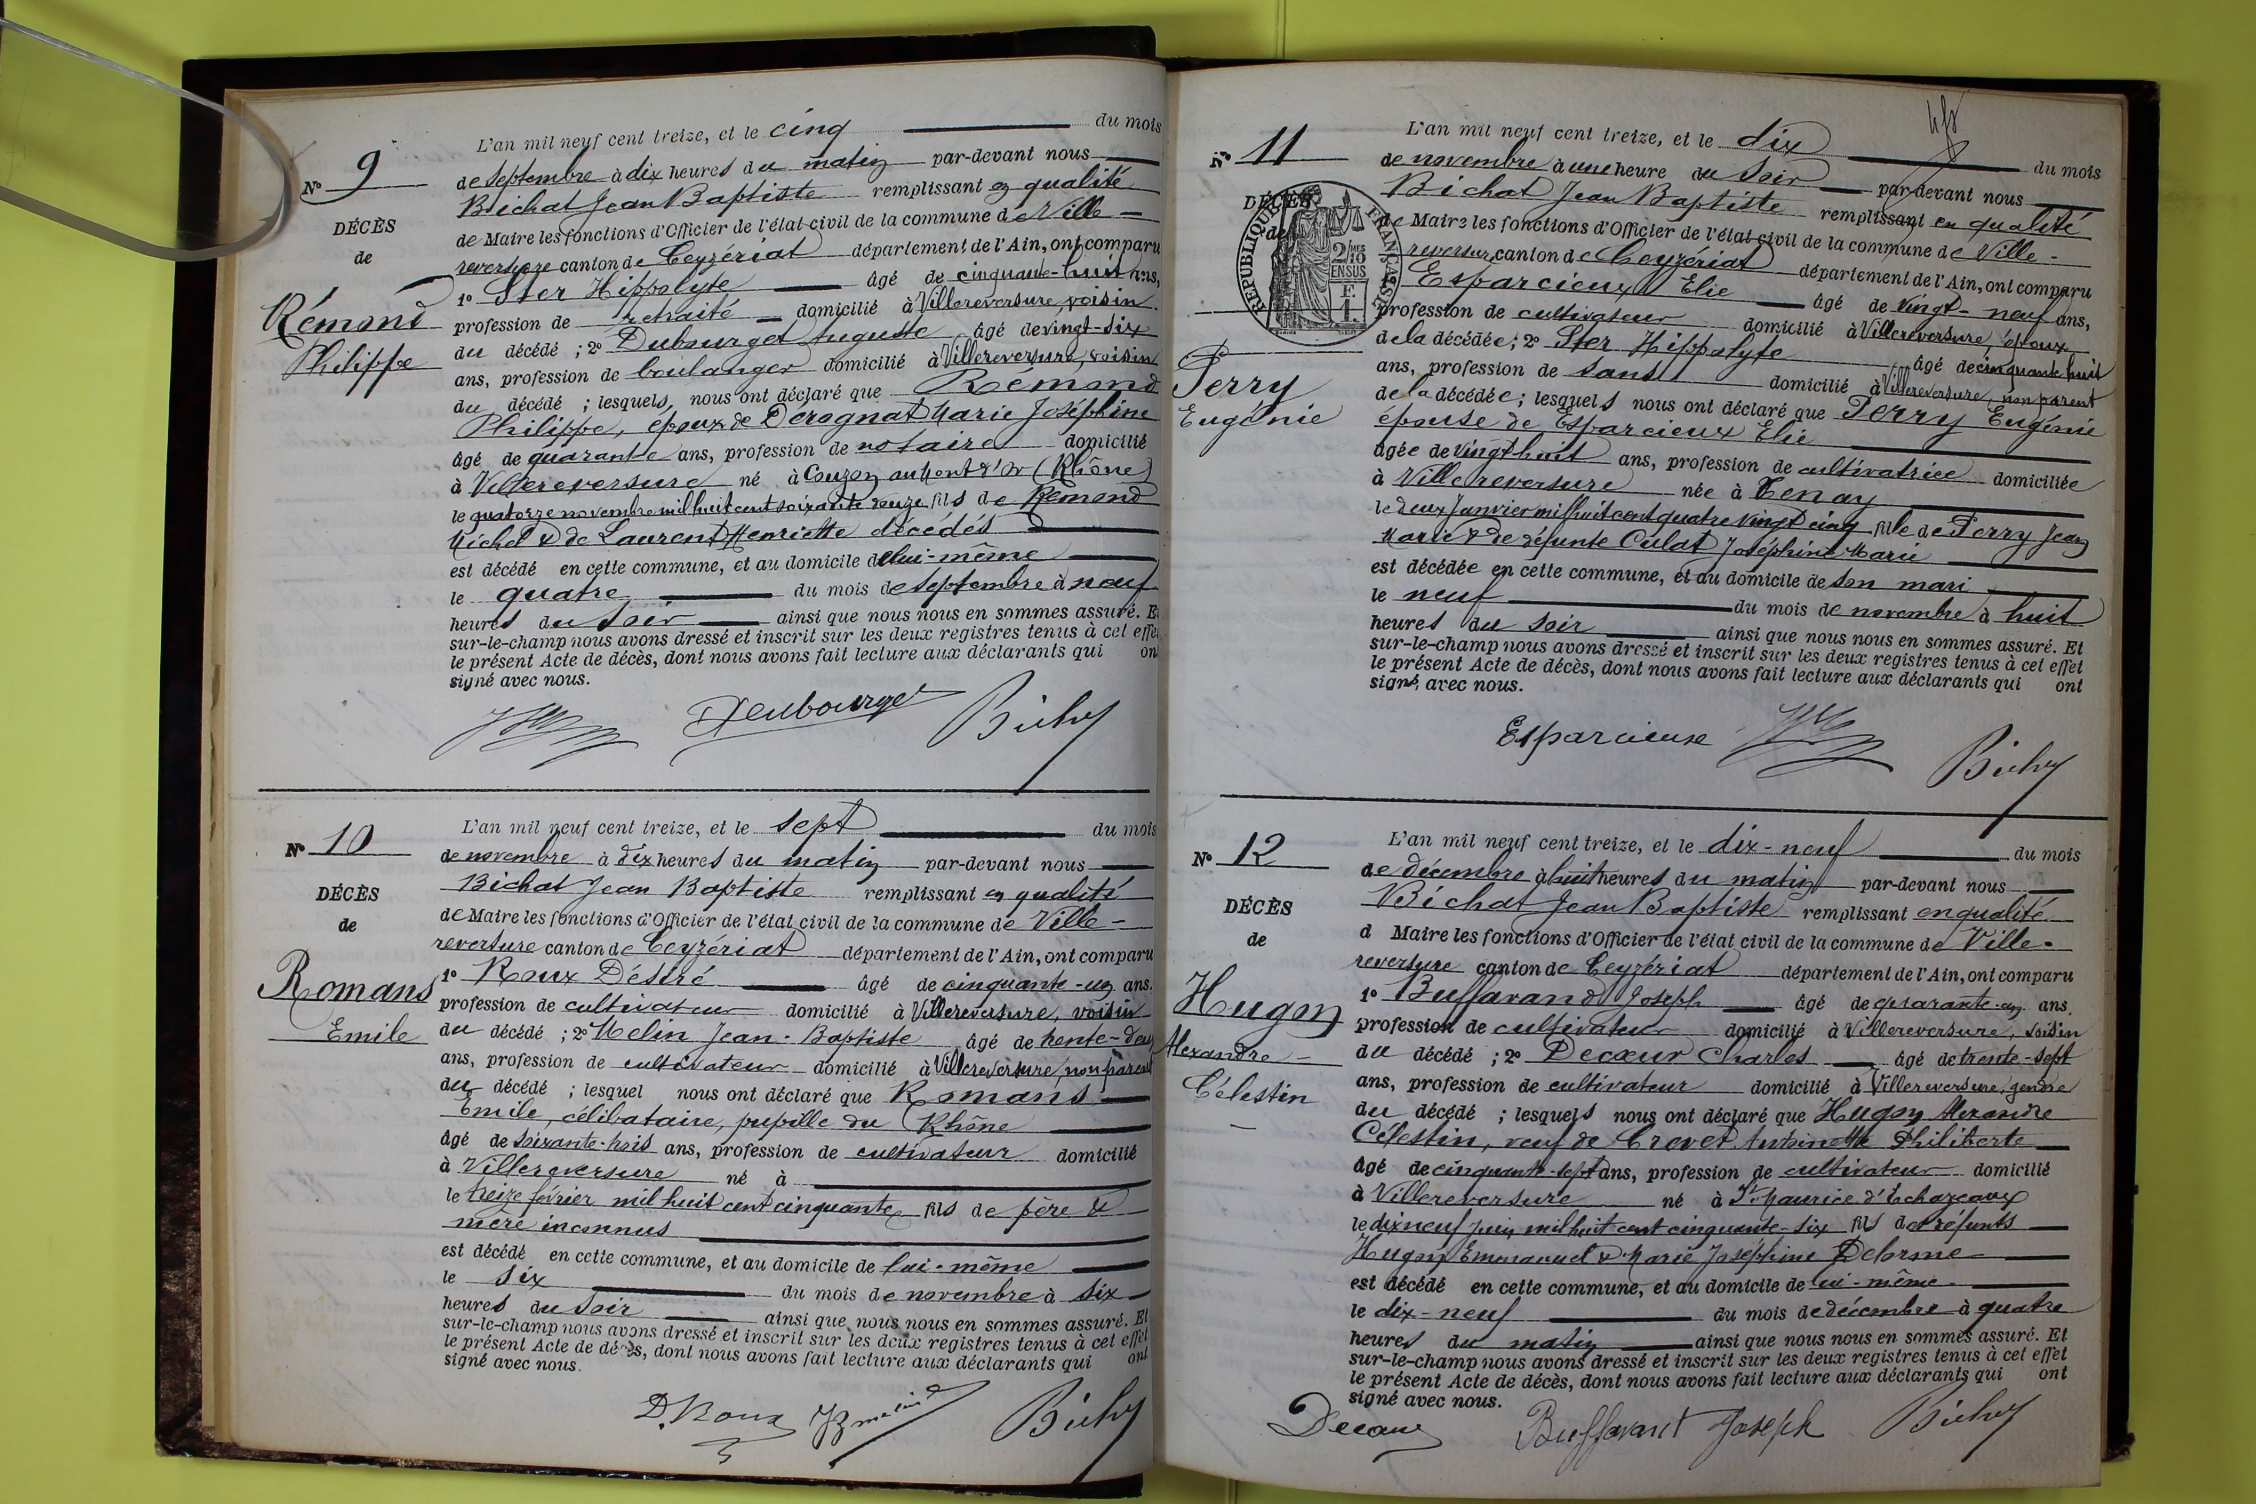 N° 9
DÉCÈS
de
Rémond
Philippe
L'an mil neuf cent treize, et le cinq du mois
de septembre à dix heures du matin par-devant nous
Bichat Jean Baptiste remplissant en qualité
de Maire les fonctions d'Officier de l'état civil de la commune de Ville
reversure canton de Ceyzériat département de l'Ain, ont comparu
1° Ster Hippolyte âgé de cinquante-huit ans,
profession de retraité domicilié à Villereversure, voisin
du décédé ; 2° Dubourget Auguste âgé de vingt-six
ans, profession de boulanger domicilié à Villereversure, voisin
du décédé ; lesquels nous ont déclaré que Rémond
Philippe, époux de Derognat Marie Joséphine
âgé de quarante ans, profession de notaire domicilié
à Villereversure né à Couzon au Mont d'Or (Rhône)
le quatorze novembre mil huit cent soixante douze fils de Rémond
Michel & de Laurent Henriette décédés
est décédé en cette commune, et au domicile de lui-même
le quatre du mois de septembre à neuf
heures du soir ainsi que nous nous en sommes assuré. Et
sur-le-champ nous avons dressé et inscrit sur les deux registres tenus à cet effet
le présent Acte de décès, dont nous avons fait lecture aux déclarants qui ont
signé avec nous.
Deubourget Bichat
N° 10
DÉCÈS
de
Romans
Emile
L'an mil neuf cent treize, et le sept du mois
de novembre à dix heures du matin par-devant nous
Bichat Jean Baptiste remplissant en qualité
de Maire les fonctions d'Officier de l'état civil de la commune de Ville-
reversure canton de Ceyzériat département de l'Ain, ont comparu
1° Roux Désiré âgé de cinquante-un ans.
profession de cultivateur domicilié à Villereversure, voisin
du décédé ; 2° Melin Jean-Baptiste âgé de trente-deux
ans, profession de cultivateur domicilié à Villereversure, non parent
du décédé ; lesquel nous ont déclaré que Romans
Emile, célibataire, pupille du Rhône
âgé de soixante-trois ans, profession de cultivateur domicilié
à Villereversure né à
le treize février mil huit cent cinquante fils de père &
mère inconnus
est décédé en cette commune, et au domicile de lui-même
le six du mois de novembre à six
heures du soir ainsi que nous nous en sommes assuré. Et
sur-le-champ nous avons dressé et inscrit sur les deux registres tenus à cet effet
le présent Acte de décès, dont nous avons fait lecture aux déclarants qui ont
signé avec nous.
D. Roux Bichat
N° 11
DÉCÈS
de
RÉPUBLIQUE FRANÇAISE
2/10
EN SUS
F.
1.
Perry
Eugénie
L'an mil neuf cent treize, et le dix du mois
de novembre à une heure du soir par-devant nous
Bichat Jean Baptiste remplissant en qualité
de Maire les fonctions d'Officier de l'état civil de la commune de Ville-
reversure canton de Ceyzériat département de l'Ain, ont comparu
Esparcieux Elie âgé de vingt-neuf ans,
profession de cultivateur domicilié à Villereversure, époux
de la décédée ; 2° Ster Hippolyte âgé de cinquante huit
ans, profession de sans domicilié à Villereversure, non parent
de la décédée ; lesquels nous ont déclaré que Perry Eugénie
épouse de Esparcieux Elie
âgée de vingt huit ans, profession de cultivatrice domiciliée
à Villereversure née à Tenay
le deux Janvier mil huit cent quatre vingt cinq fille de Perry Jean
Marie & de défunte Culat Joséphine Marie
est décédée en cette commune, et au domicile de son mari
le neuf du mois de novembre à huit
heures du soir ainsi que nous nous en sommes assuré. Et
sur-le-champ nous avons dressé et inscrit sur les deux registres tenus à cet effet
le présent Acte de décès, dont nous avons fait lecture aux déclarants qui ont
signé avec nous.
Esparcieux Bichat
N° 12
DÉCÈS
de
Hugon
Alexandre-
Célestin
L'an mil neuf cent treize, et le dix-neuf du mois
de décembre à huit heures du matin par-devant nous
Bichat Jean Baptiste remplissant en qualité
d Maire les fonctions d'Officier de l'état civil de la commune de Ville-
reversure canton de Ceyzériat département de l'Ain, ont comparu
1° Buffavand Joseph âgé de quarante-un ans,
profession de cultivateur domicilié à Villereversure, voisin
du décédé ; 2° Decœur Charles âgé de trente-sept
ans, profession de cultivateur domicilié à Villereversure, gendre
du décédé ; lesquels nous ont déclaré que Hugon Alexandre
Célestin, veuf de Crevet Antoinette Philiberte
âgé de cinquante-sept ans, profession de cultivateur domicilié
à Villereversure né à St Maurice d'Echazeaux
le dix neuf Juin mil huit cent cinquante-six fils de défunts
Hugon Emmanuel & Marie Joséphine Delorme
est décédé en cette commune, et au domicile de lui-même
le dix-neuf du mois de décembre à quatre
heures du matin ainsi que nous nous en sommes assuré. Et
sur-le-champ nous avons dressé et inscrit sur les deux registres tenus à cet effet
le présent Acte de décès, dont nous avons fait lecture aux déclarants qui ont
signé avec nous.
Decœur Buffavand Joseph Bichat